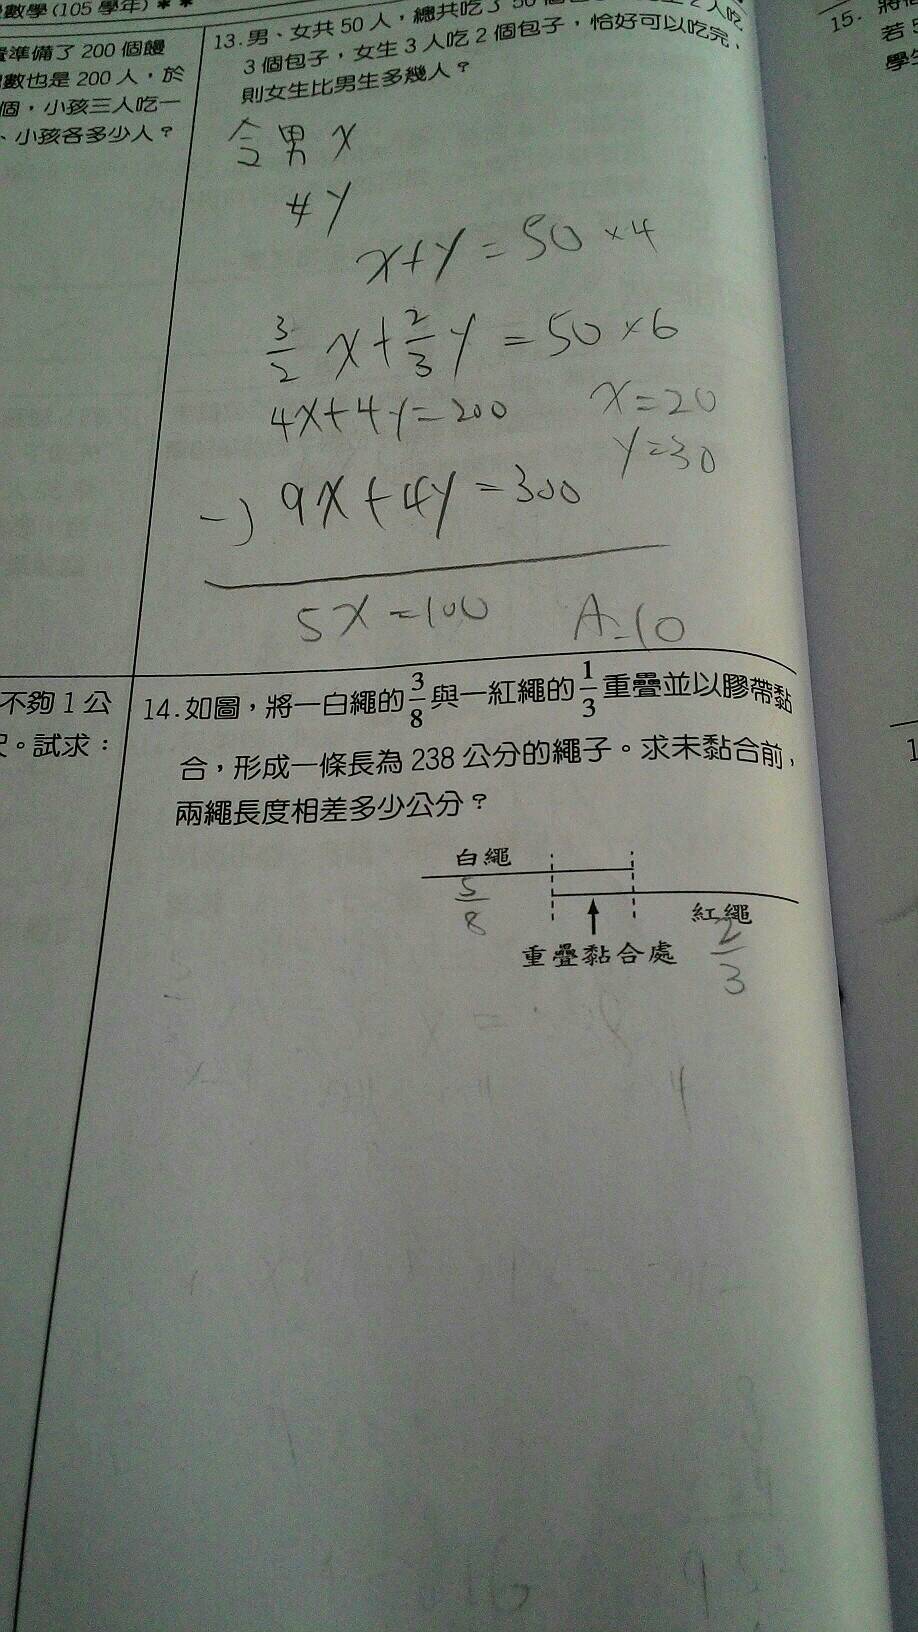 數學(105 學年)**
準備了 200 個饅
數也是 200 人，於
個，小孩三人吃一
、小孩各多少人？
13.男、女共 50 人，總共吃了 50 個
2 人吃
3 個包子，女生 3 人吃 2 個包子，恰好可以吃完，
則女生比男生多幾人？
令男 x
女 y
x+y=50×4
3/2 x+2/3 y=50×6
4x+4y=200
x=20
y=30
-) 9x+4y=300
5x=100
A=10
不夠 1 公
。試求：
14.如圖，將一白繩的 3/8 與一紅繩的 1/3 重疊並以膠帶黏
合，形成一條長為 238 公分的繩子。求未黏合前，
兩繩長度相差多少公分？
白繩
5/8
紅繩
2/3
重疊黏合處
15.
若